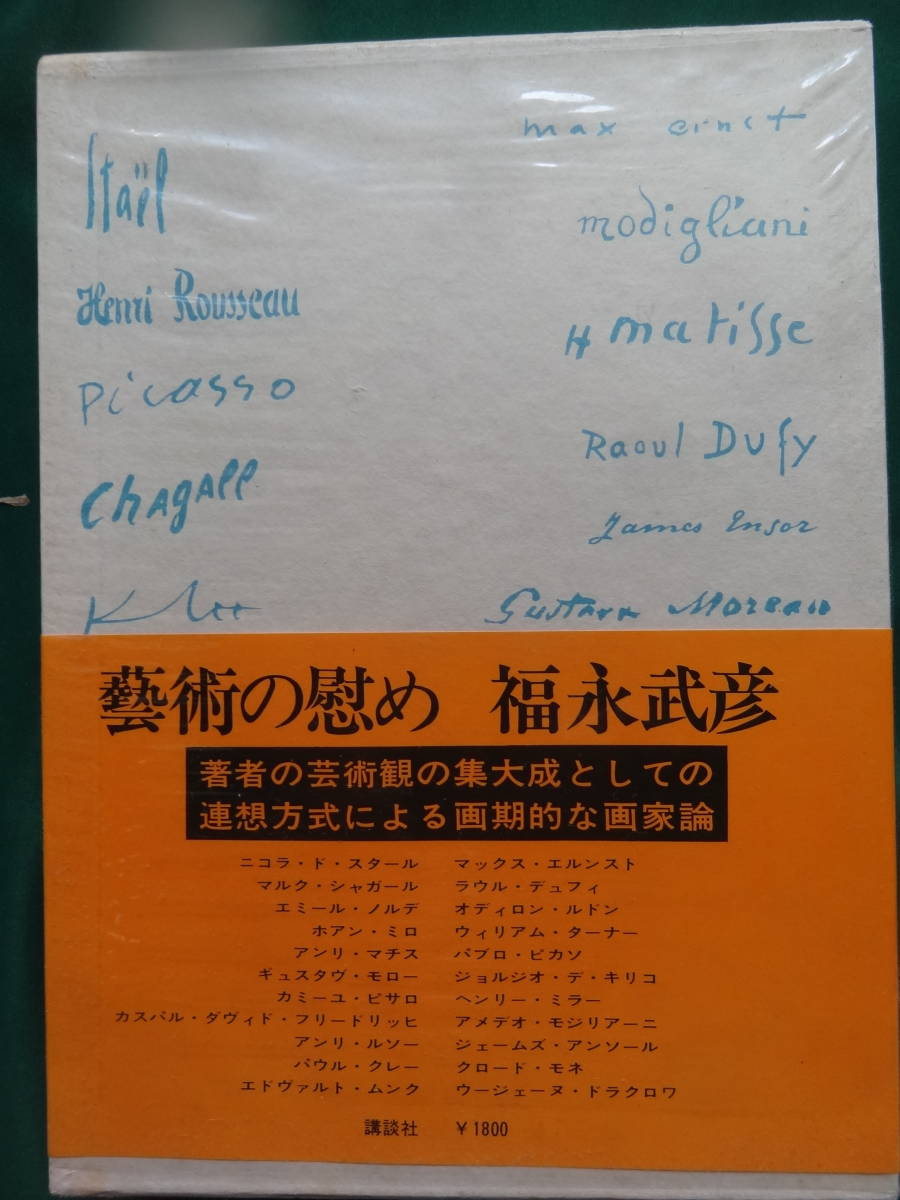 Staël
Henri Rousseau
Picasso
Chagall
Klee
max ernst
modigliani
H matisse
Raoul Dufy
James Ensor
Gustave Moreau
藝術の慰め 福永武彦
著者の芸術観の集大成としての
連想方式による画期的な画家論
ニコラ・ド・スタール
マルク・シャガール
エミール・ノルデ
ホアン・ミロ
アンリ・マチス
ギュスタヴ・モロー
カミーユ・ピサロ
カスパル・ダヴィド・フリードリッヒ
アンリ・ルソー
パウル・クレー
エドヴァルト・ムンク
マックス・エルンスト
ラウル・デュフィ
オディロン・ルドン
ウィリアム・ターナー
パブロ・ピカソ
ジョルジオ・デ・キリコ
ヘンリー・ミラー
アメデオ・モジリアーニ
ジェームズ・アンソール
クロード・モネ
ウージェーヌ・ドラクロワ
講談社 ￥1800